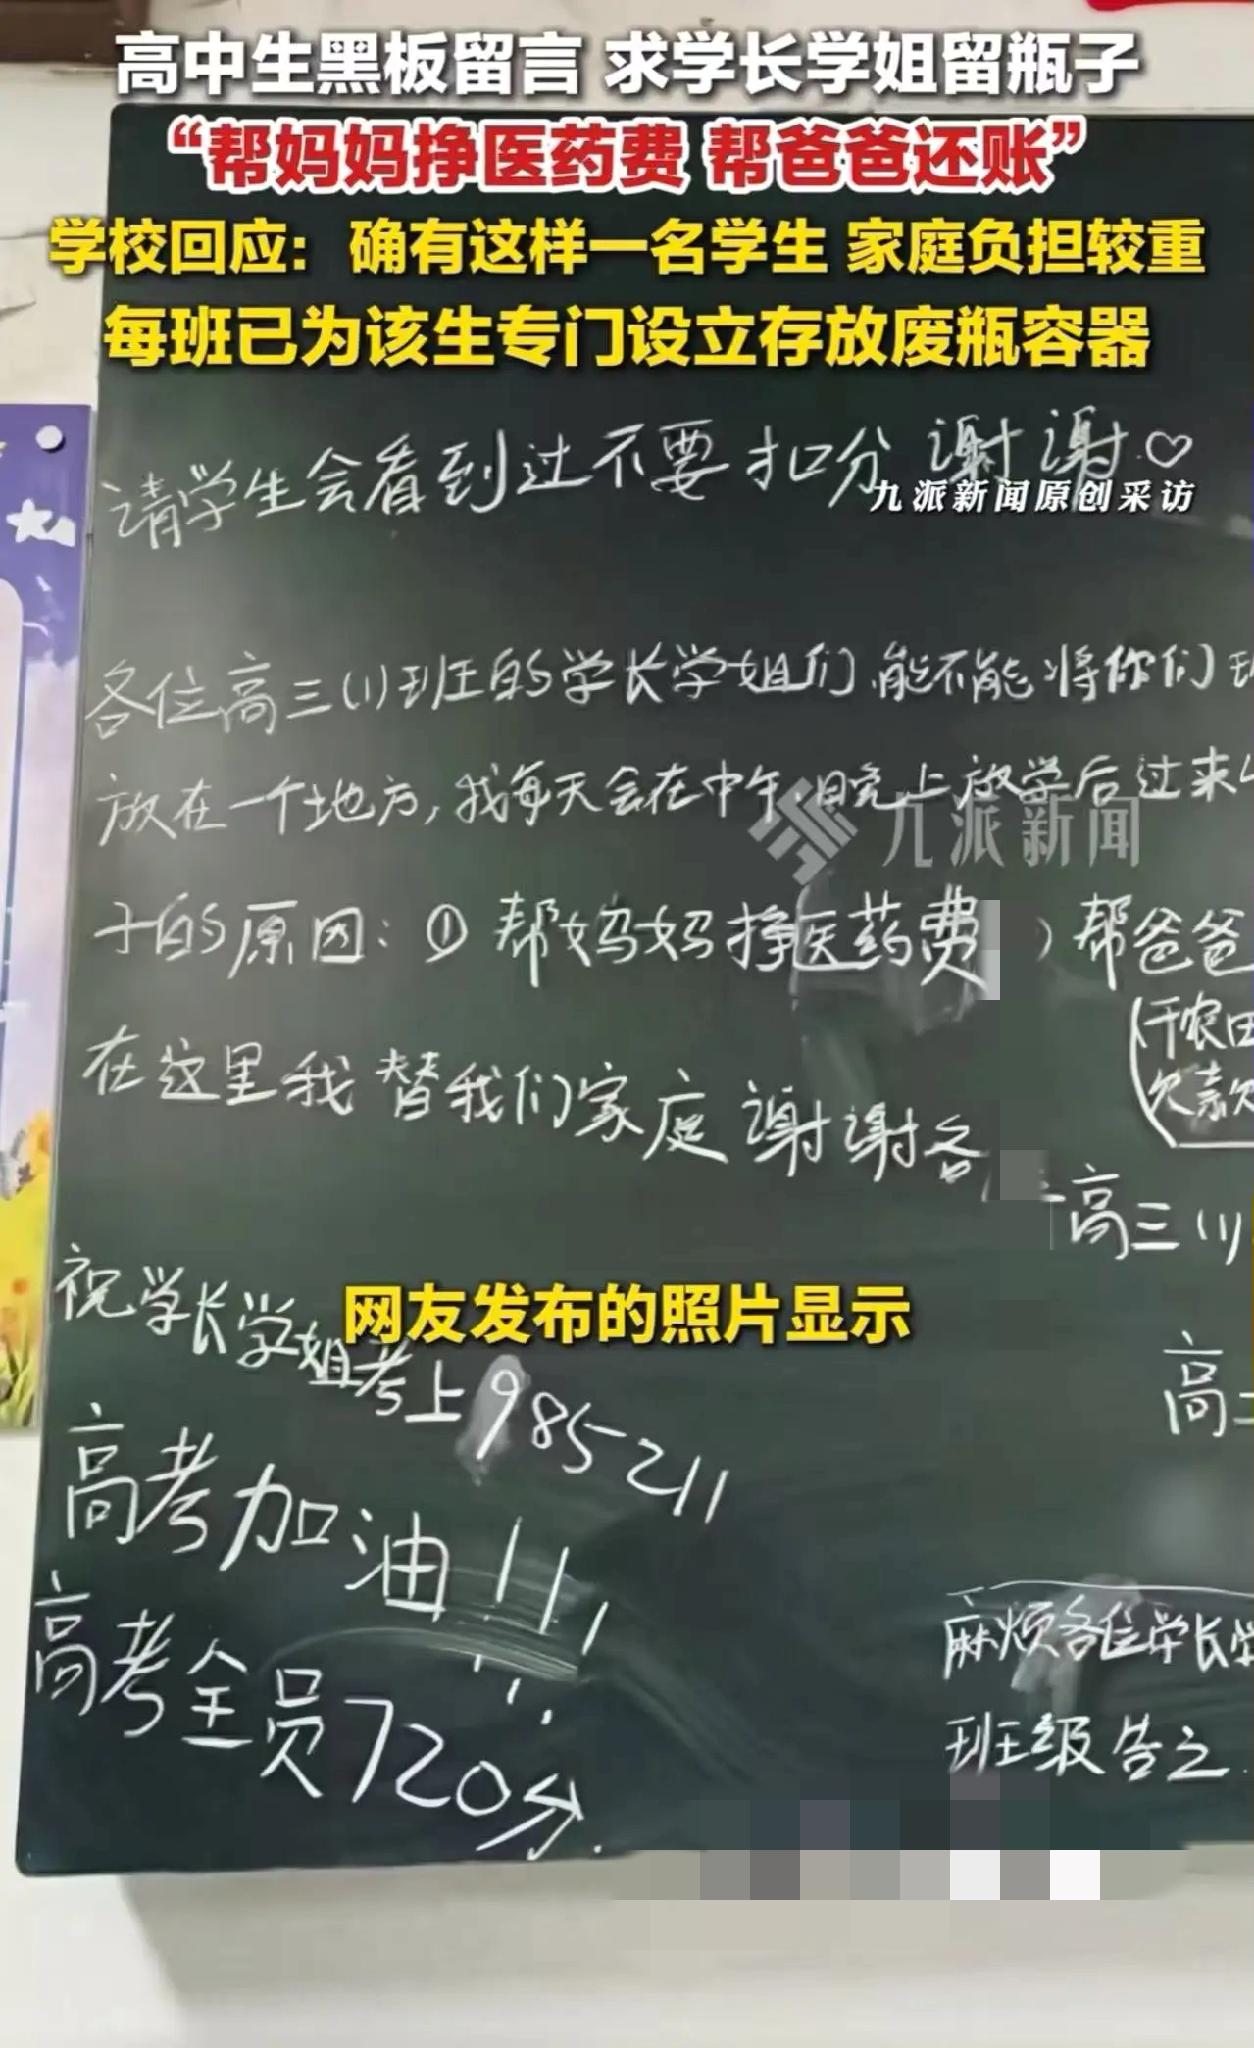 高中生黑板留言 求学长学姐留瓶子
“帮妈妈挣医药费 帮爸爸还账”
学校回应：确有这样一名学生 家庭负担较重
每班已为该生专门设立存放废瓶容器
请学生会看到过不要扣分 谢谢♡
九派新闻原创采访
各位高三(1)班的学长学姐们,能不能将你们
放在一个地方,我每天会在中午 晚上放学后过来
九派新闻
子的原因:① 帮妈妈挣医药费 ) 帮爸爸
(干农田
欠款
在这里我替我们家庭谢谢各
高三(1)
祝学长学姐考上985 211
网友发布的照片显示
高考加油!!!
高考全员720分.
麻烦各位学长学
班级告之